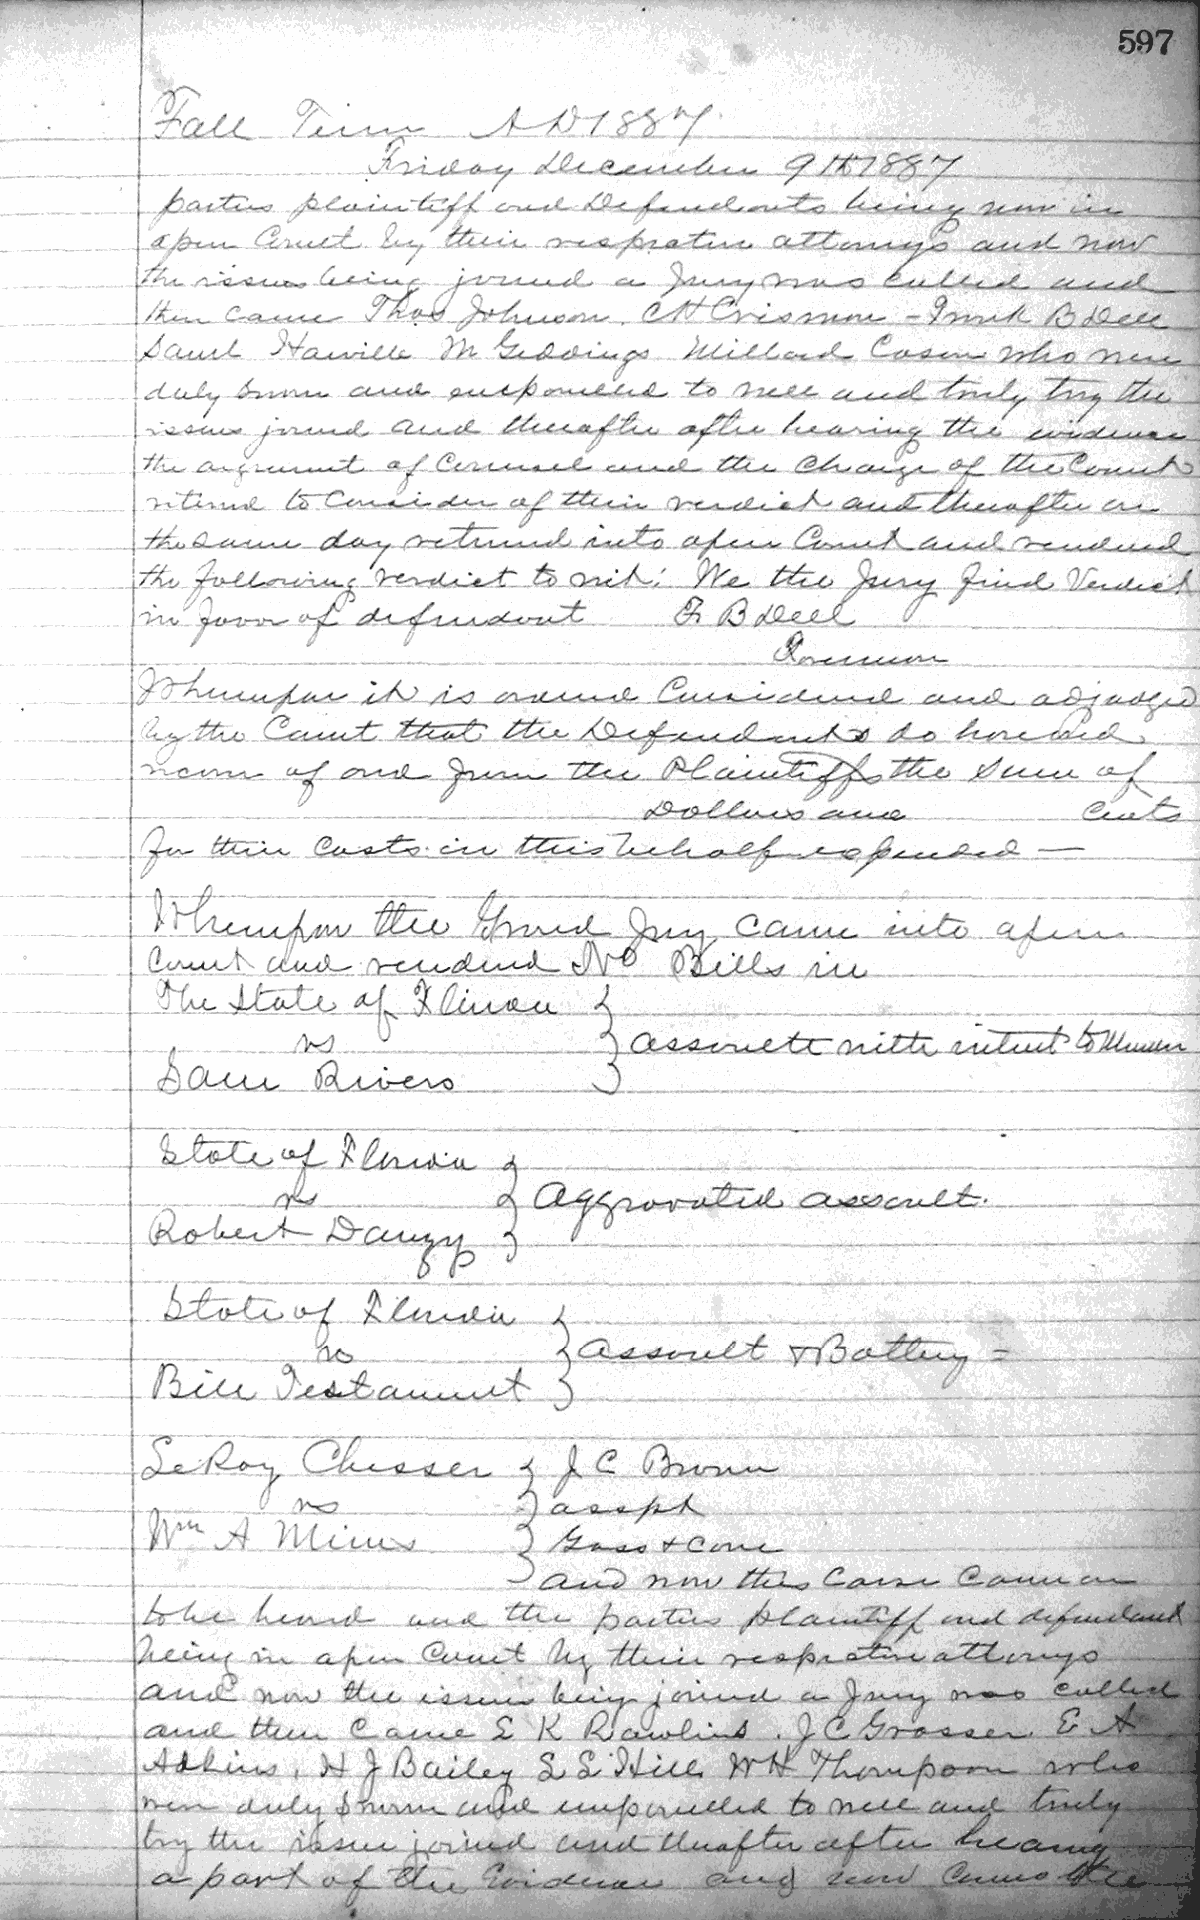 597
Fall Term A D 1887.
Friday December 9th 1887
parties plaintiff and Defendants being now in
open Court by their respective attorneys and now
the issues being joined a Jury was called and
then came Thos Johnson. C H Crismon - Frank B Dell
Saml Haville M Geddings Millard Cason who were
duly sworn and empanelled to well and truly try the
issues joined and thereafter after hearing the evidence
the argument of Counsel and the Charge of the Court
retired to Consider of their verdict and thereafter on
the same day returned into open Court and rendered
the following verdict to wit: We the Jury find Verdict
in favor of defendant F B Dell
Foreman
Whereupon it is ordered Considered and adjudged
by the Court that the Defendants do have and
recover of and from the Plaintiffs the Sum of
Dollars and Cents
for their Costs in this behalf expended —
Whereupon the Grand Jury came into open
Court and rendered No Bills in
The State of Florida
vs } assault with intent to Murder
Sam Rivers
State of Florida
vs } Aggravated assault.
Robert Danzy
State of Florida
vs } Assault & Battery =
Bill Testament
LeRoy Chesser } J C Brown
vs } asspt
Wm A Mims } Goss & Cone
and now this Cause Came on
to be heard and the parties plaintiff and defendant
being in open Court by their respective attorneys
and now the issues being joined a Jury was called
and then Came E K Rawlins. J C Grosser. E A
Adkins, H J Bailey S S Hill W H Thompson who
were duly sworn and empanelled to well and truly
try the issue joined and thereafter after hearing
a part of the Evidence and now comes the